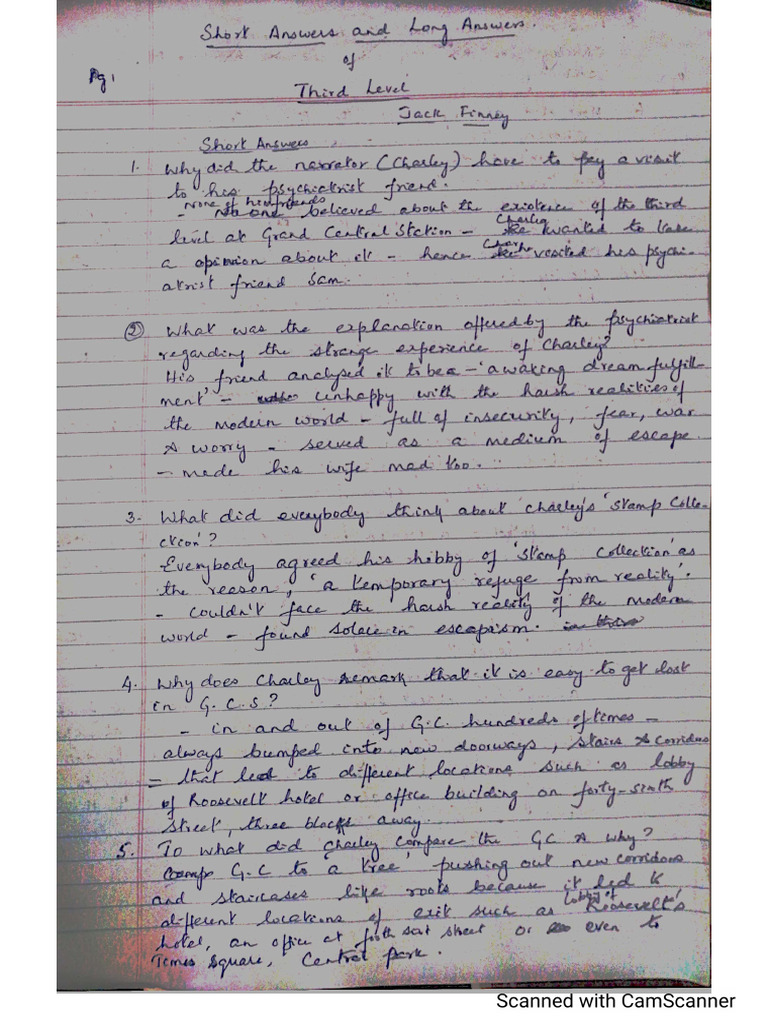 Short Answers and Long Answers.
of
Pg 1
Third Level
Jack Finney
Short Answers
1. Why did the narrator (Charley) have to pay a visit
to his psychiatrist friend.
None of his friends
- believed about the existence of the third
Charley
level at Grand Central Station - wanted to take
Charley
a opinion about it - hence visited his psychi-
atrist friend Sam.
② What was the explanation offered by the psychiatrist
regarding the strange experience of Charley?
His friend analysed it to be a - 'a waking dream fulfill-
ment' - unhappy with the harsh realities of
the modern world - full of insecurity, fear, war
& worry - served as a medium of escape.
- made his wife mad too.
3. What did everybody think about Charley's 'Stamp Colle-
ction'?
- Everybody agreed his hobby of 'Stamp Collection' as
the reason, 'a temporary refuge from reality'.
- couldn't face the harsh reality of the modern
world - found solace in escapism.
4. Why does Charley remark that it is easy to get lost
in G.C.S?
- in and out of G.C. hundreds of times -
always bumped into new doorways, stairs & corridors
- that led to different locations such as lobby
of Roosevelt hotel or office building on forty-sixth
street, three blocks away.
5. To what did Charley compare the GC & why?
G.C to a 'tree' pushing out new corridors
and staircases like roots because it led to
lobby of
different locations of exit such as Roosevelt's
hotel, an office at street or even to
Times Square, Central Park.
Scanned with CamScanner